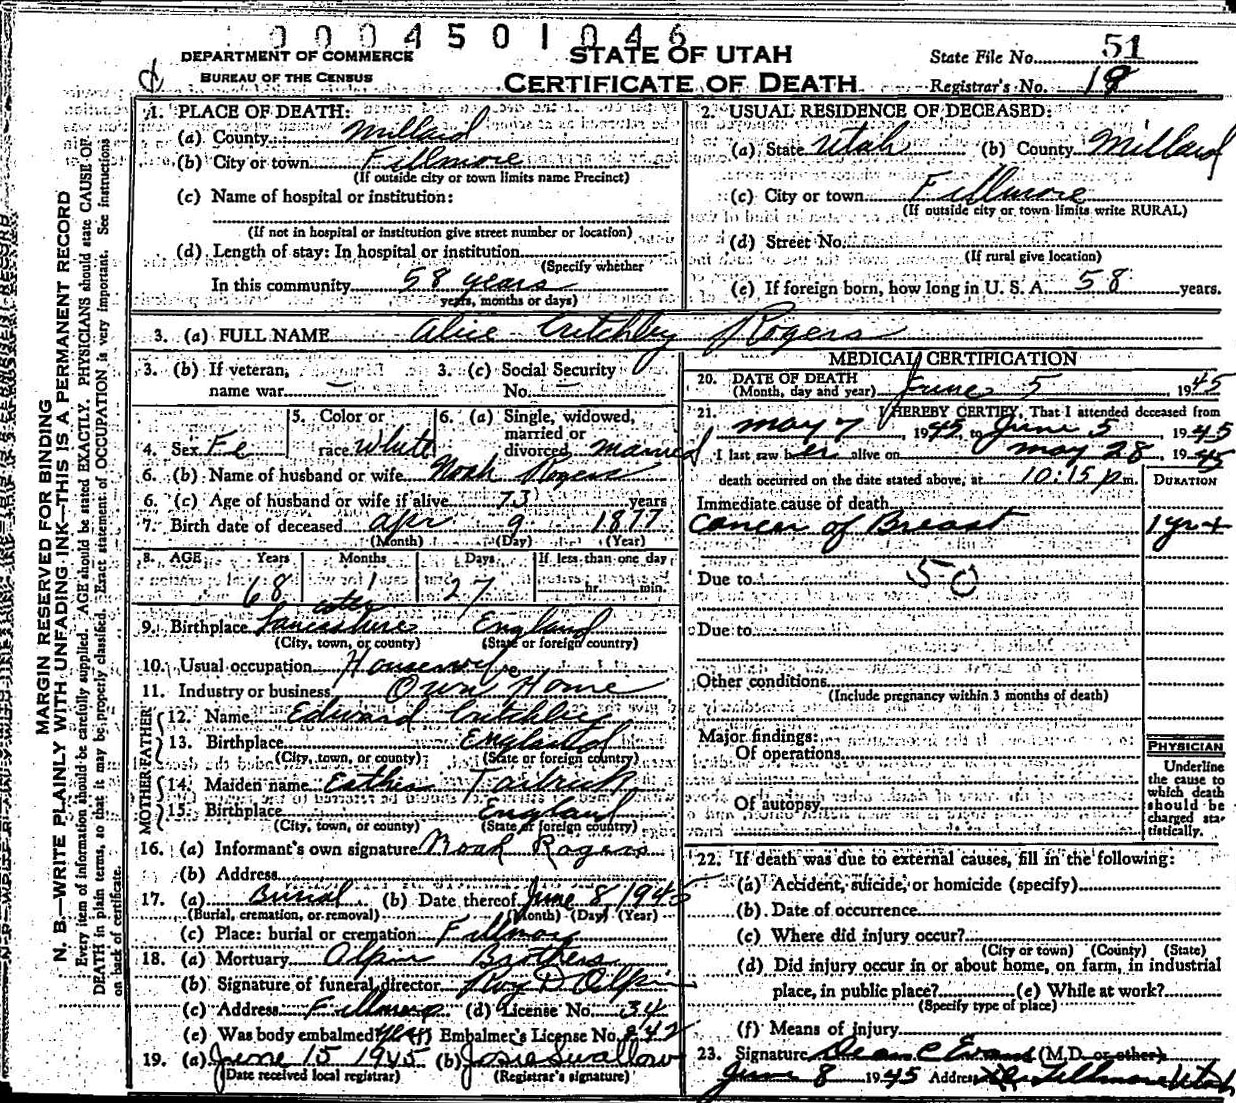 0004501046
DEPARTMENT OF COMMERCE
BUREAU OF THE CENSUS
STATE OF UTAH
CERTIFICATE OF DEATH
State File No. 51
Registrar's No. 18
MARGIN RESERVED FOR BINDING
N. B.—WRITE PLAINLY WITH UNFADING INK—THIS IS A PERMANENT RECORD
Every item of information should be carefully supplied. AGE should be stated EXACTLY. PHYSICIANS should state CAUSE OF
DEATH in plain terms, so that it may be properly classified. Exact statement of OCCUPATION is very important. See instructions
on back of certificate.
1. PLACE OF DEATH:
(a) County Millard
(b) City or town Fillmore
(If outside city or town limits name Precinct)
(c) Name of hospital or institution:
(If not in hospital or institution give street number or location)
(d) Length of stay: In hospital or institution
(Specify whether
In this community 58 years
years, months or days)
2. USUAL RESIDENCE OF DECEASED:
(a) State Utah (b) County Millard
(c) City or town Fillmore
(If outside city or town limits write RURAL)
(d) Street No.
(If rural give location)
(e) If foreign born, how long in U. S. A. 58 years.
3. (a) FULL NAME Alice Critchley Rogers
3. (b) If veteran, name war
3. (c) Social Security No.
4. Sex Fe
5. Color or race White
6. (a) Single, widowed, married or divorced married
6. (b) Name of husband or wife Noah Rogers
6. (c) Age of husband or wife if alive 73 years
7. Birth date of deceased Apr 9 1877
(Month) (Day) (Year)
8. AGE Years Months Days If less than one day
68 1 27 hr. min.
9. Birthplace Lancashire England
(City, town, or county) (State or foreign country)
10. Usual occupation Housewife
11. Industry or business Own Home
FATHER
12. Name Edward Critchley
13. Birthplace England
(City, town, or county) (State or foreign country)
MOTHER
14. Maiden name Esther
15. Birthplace England
(City, town, or county) (State or foreign country)
16. (a) Informant's own signature Noah Rogers
(b) Address
17. (a) Burial (b) Date thereof June 8 1945
(Burial, cremation, or removal) (Month) (Day) (Year)
(c) Place: burial or cremation Fillmore
18. (a) Mortuary Olpin Brothers
(b) Signature of funeral director Roy D Olpin
(c) Address Fillmore (d) License No. 34
(e) Was body embalmed? yes (f) Embalmer's License No. 242
19. (a) June 15 1945 (b) Josie Swallow
(Date received local registrar) (Registrar's signature)
MEDICAL CERTIFICATION
20. DATE OF DEATH
(Month, day and year) June 5, 1945
21. I HEREBY CERTIFY, That I attended deceased from
May 7, 1945, to June 5 1945
I last saw her alive on May 28, 1945
death occurred on the date stated above, at 10:15 p.m.
DURATION
Immediate cause of death
Cancer of Breast 1 yr +
Due to 50
Due to
Other conditions
(Include pregnancy within 3 months of death)
Major findings:
Of operations
Of autopsy
PHYSICIAN
Underline
the cause to
which death
should be
charged sta-
tistically.
22. If death was due to external causes, fill in the following:
(a) Accident, suicide, or homicide (specify)
(b) Date of occurrence
(c) Where did injury occur?
(City or town) (County) (State)
(d) Did injury occur in or about home, on farm, in industrial
place, in public place? (e) While at work?
(Specify type of place)
(f) Means of injury
23. Signature Dean C Evans (M.D. or other)
June 8 1945 Address Fillmore Utah